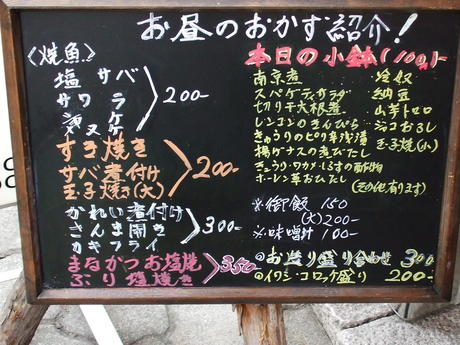 お昼のおかず紹介!
〈焼魚〉
塩サバ
サワラ
シャケ
200-
すき焼き
サバ煮付け
玉子焼き(大)
200-
かれい煮付け
さんま開き
カキフライ
300-
まなかつお塩焼
ぶり塩焼き
350-
本日の小鉢(100)-
南京煮
スパゲティサラダ
切り干大根煮
レンコンのきんぴら
きゅうりのピリ辛浅漬
揚ゲナスの煮びたし
きゅうり・ワカメ・しらすの酢の物
ホーレン草おひたし
冷奴
納豆
山芋トロロ
ジャコおろし
玉子焼(小)
(その他有ります)
※御飯 150
(大)200-
※味噌汁 100-
◎お造り盛り合わせ 300
◎イワシ・コロッケ盛り 200-